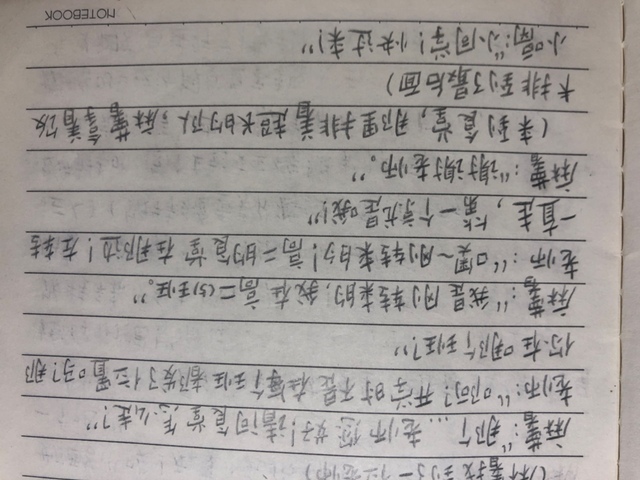 (麻薯找到了一位老师)
麻薯:“那个...老师您好!请问食堂怎么走?”
老师:“啊?开学时不是在每个班都发了位置吗?那
你在哪个班?”
麻薯:“我是刚转来的,我在高二(5)班。”
老师:“噢~刚转来的!高二的食堂在那边!左转
一直走,第一个就是哦!”
麻薯:“谢谢老师。”
(来到食堂,那里排着超长的队,麻薯拿着饭
卡排到了最后面)
小:“小同学!快过来!”
NOTEBOOK